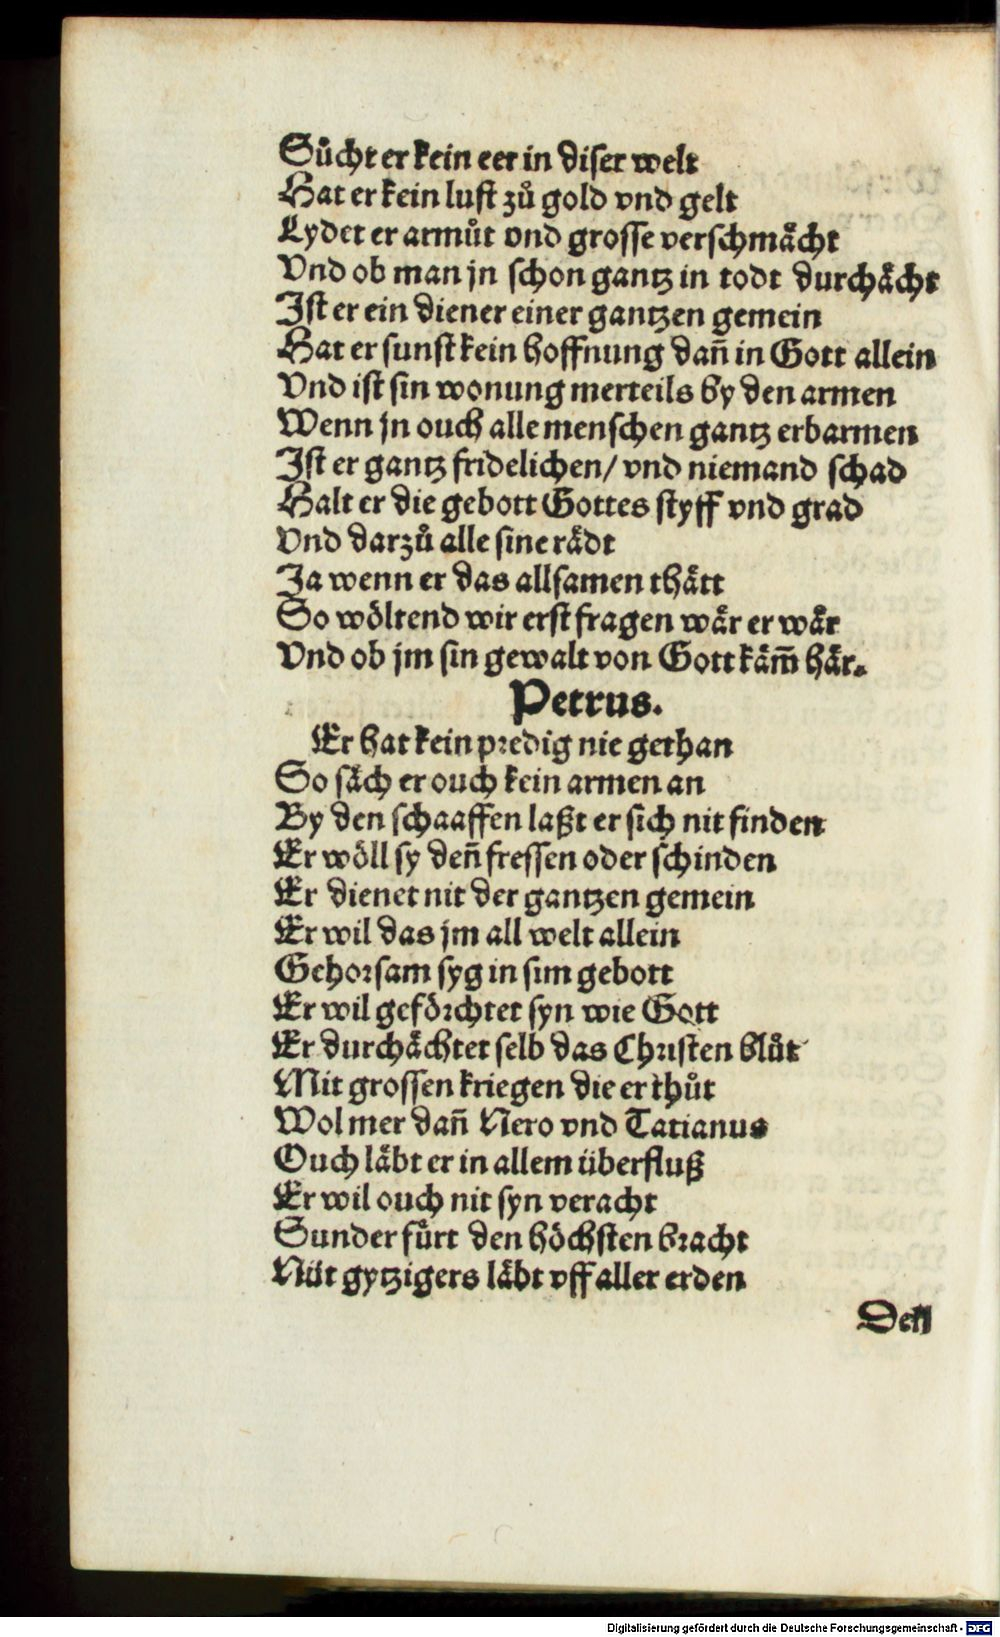 Sůcht er kein eer in diser welt
Hat er kein lust zů gold vnd gelt
Lydet er armůt vnd grosse verschmächt
Vnd ob man jn schon gantz in todt durchächt
Ist er ein diener einer gantzen gemein
Hat er sunst kein hoffnung dañ in Gott allein
Vnd ist sin wonung merteils by den armen
Wenn jn ouch alle menschen gantz erbarmen
Ist er gantz fridelichen/ vnd niemand schad
Halt er die gebott Gottes styff vnd grad
Vnd darzů alle sine rädt
Ja wenn er das allsamen thätt
So wöltend wir erst fragen wär er wär
Vnd ob jm sin gewalt von Gott käm̃ här.
Petrus.
Er hat kein predig nie gethan
So säch er ouch kein armen an
By den schaaffen laßt er sich nit finden
Er wöll sy deñ fressen oder schinden
Er dienet nit der gantzen gemein
Er wil das jm all welt allein
Gehorsam syg in sim gebott
Er wil geförchtet syn wie Gott
Er durchächtet selb das Christen blůt
Mit grossen kriegen die er thůt
Wol mer dañ Nero vnd Tatianus
Ouch läbt er in allem überfluß
Er wil ouch nit syn veracht
Sunder fůrt den höchsten bracht
Nüt gytzigers läbt vff aller erden
Deß
Digitalisierung gefördert durch die Deutsche Forschungsgemeinschaft - DFG